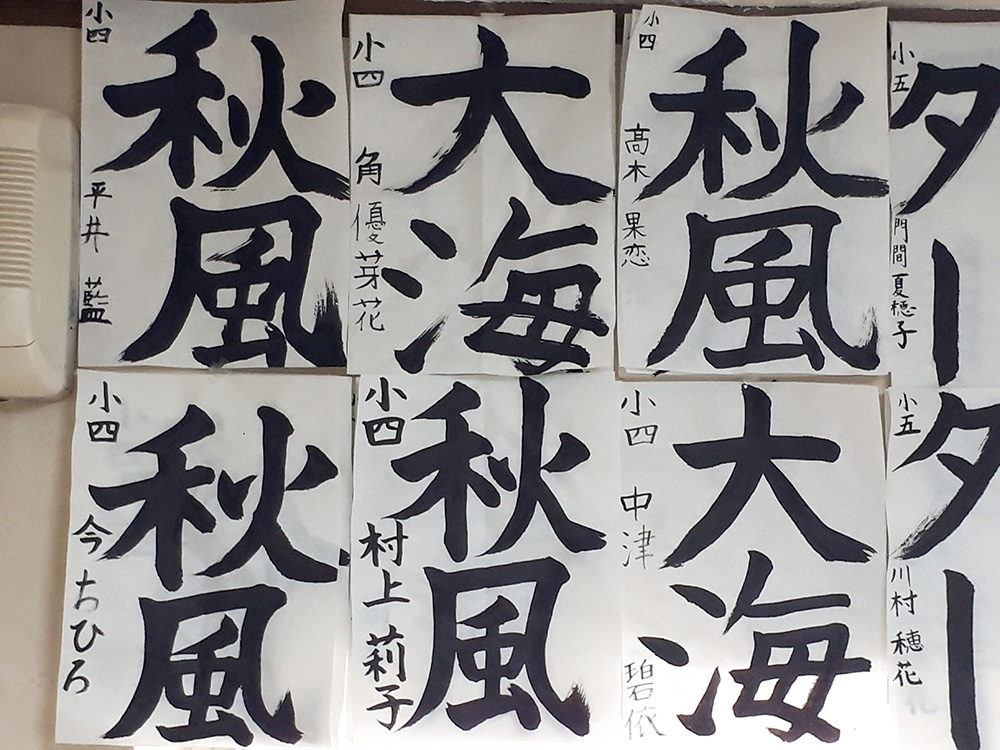 小四
秋風
平井 藍
小四
大海
角 優芽花
小四
秋風
高木 果恋
小五
ター
門間夏穂子
小四
秋風
今ちひろ
小四
秋風
村上莉子
小四
大海
中津 碧依
小五
ター
川村 穂花